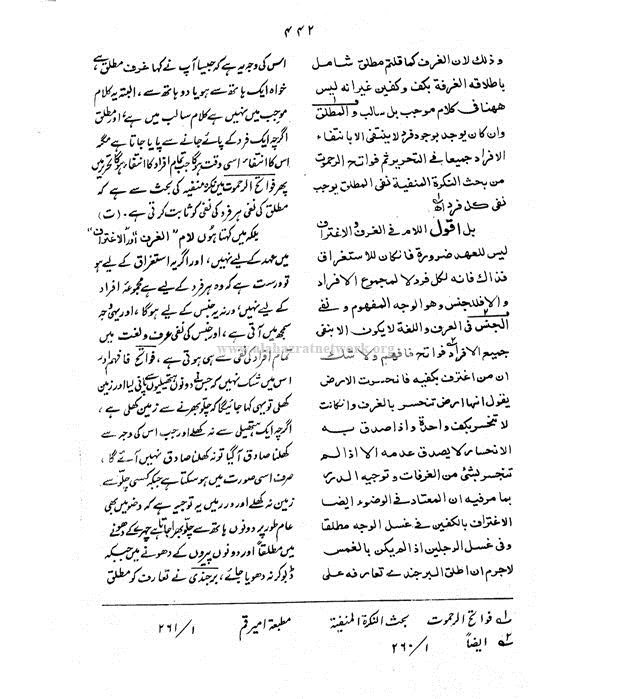 ۴۴۲
وذلك لان الغرف كما قلتم مطلق شامل
باطلاقه الغرفة بكف وكفين غير انه ليس
ههنا فى كلام موجب بل سالب والمطلق
وان كان يوجد بوجود فرد لا ينتفى الا بانتفاء
الافراد جميعا فى التحرير ثم فواتح الرحموت
من بحث النكرة المنفية نفى المطلق يوجب
نفى كل فرد اھ
بل اقول اللام فى الغرف والاغتراف
ليس للعهد ضرورة فان كان للاستغراق
فذاك فانه لكل فرد لا لمجموع الافراد
والا فللجنس وهو الوجه المفهوم و نفى
الجنس فى العرف واللغة لا يكون الا بنفى
جميع الافراد فواتح فافهم ولا شك
ان من اغترف بكفيه فانحسرت الارض
يقول انها ارض تنحسر بالغرف وان كانت
لا تنحسر بكف واحدة واذا صدق به
الانحسار لا يصدق عدمه الا اذا لم
تنحسر بشئ من الغرفات و توجيه الدرر
بما مر فيه ان المعتاد فى الوضوء ايضا
الاغتراف بالكفين فى غسل الوجه مطلقا
وفى غسل الرجلين اذا لم يكن بالغمس
لاجرم ان اطلق البرجندى تعارفه على
اس کی وجہ یہ ہے کہ جیسا آپ نے کہا غرف مطلق ہے،
خواہ ایک ہاتھ سے ہو یا دو ہاتھ سے، البتہ یہ کلام
موجب میں نہیں ہے کلام سالب میں ہے، اور مطلق
اگرچہ ایک فرد کے پائے جانے سے پایا جاتا ہے مگر
اس کا انتفاء اسی وقت ہوگا جب تمام افراد کا انتفاء ہوگا تحریر میں
پھر فواتح الرحموت میں نکرہ منفیہ کی بحث سے ہے کہ
مطلق کی نفی ہر فرد کی نفی کو ثابت کرتی ہے۔ (ت)
بلکہ میں کہتا ہوں لام "الغرف" اور "الاغتراف"
میں عہد کے لیے نہیں، اور اگر یہ استغراق کے لیے ہو
تو درست ہے کہ وہ ہر فرد کے لیے ہے مجموعۂ افراد
کے لیے نہیں، ورنہ یہ جنس کے لیے ہوگا، اور یہی وجہ
سمجھ میں آتی ہے، اور جنس کی نفی عرف و لغت میں
تمام افراد کی نفی سے ہی ہوتی ہے، فواتح فافہم اور
اس میں شک نہیں کہ جس نے دونوں ہتھیلیوں سے پانی لیا اور زمین
کھلی تو یہی کہا جائیگا کہ چلّو بھرنے سے زمین کھلی ہے،
اگرچہ ایک ہتھیلی سے نہ کھلے اور جب اس کی وجہ سے
کھلنا صادق آگیا تو نہ کھلنا صادق نہیں آئے گا،
صرف اسی صورت میں ہوسکتا ہے جبکہ کسی چلّو سے
زمین نہ کھلے اور درر میں یہ توجیہ ہے کہ وضو میں بھی
عام طور پر دونوں ہاتھ سے چلّو بھرا جاتا ہے چہرے کے دھونے
میں مطلقاً اور دونوں پیروں کے دھونے میں جبکہ
ڈبو کر نہ دھویا جائے، برجندی نے تعارف کو مطلق
www.alahazratnetwork.org
۱؎ فواتح الرحموت بحث النكرة المنفية مطبعة امير قم ۱/ ۲۶۱
۲؎ ایضاً ۱/ ۲۶۰